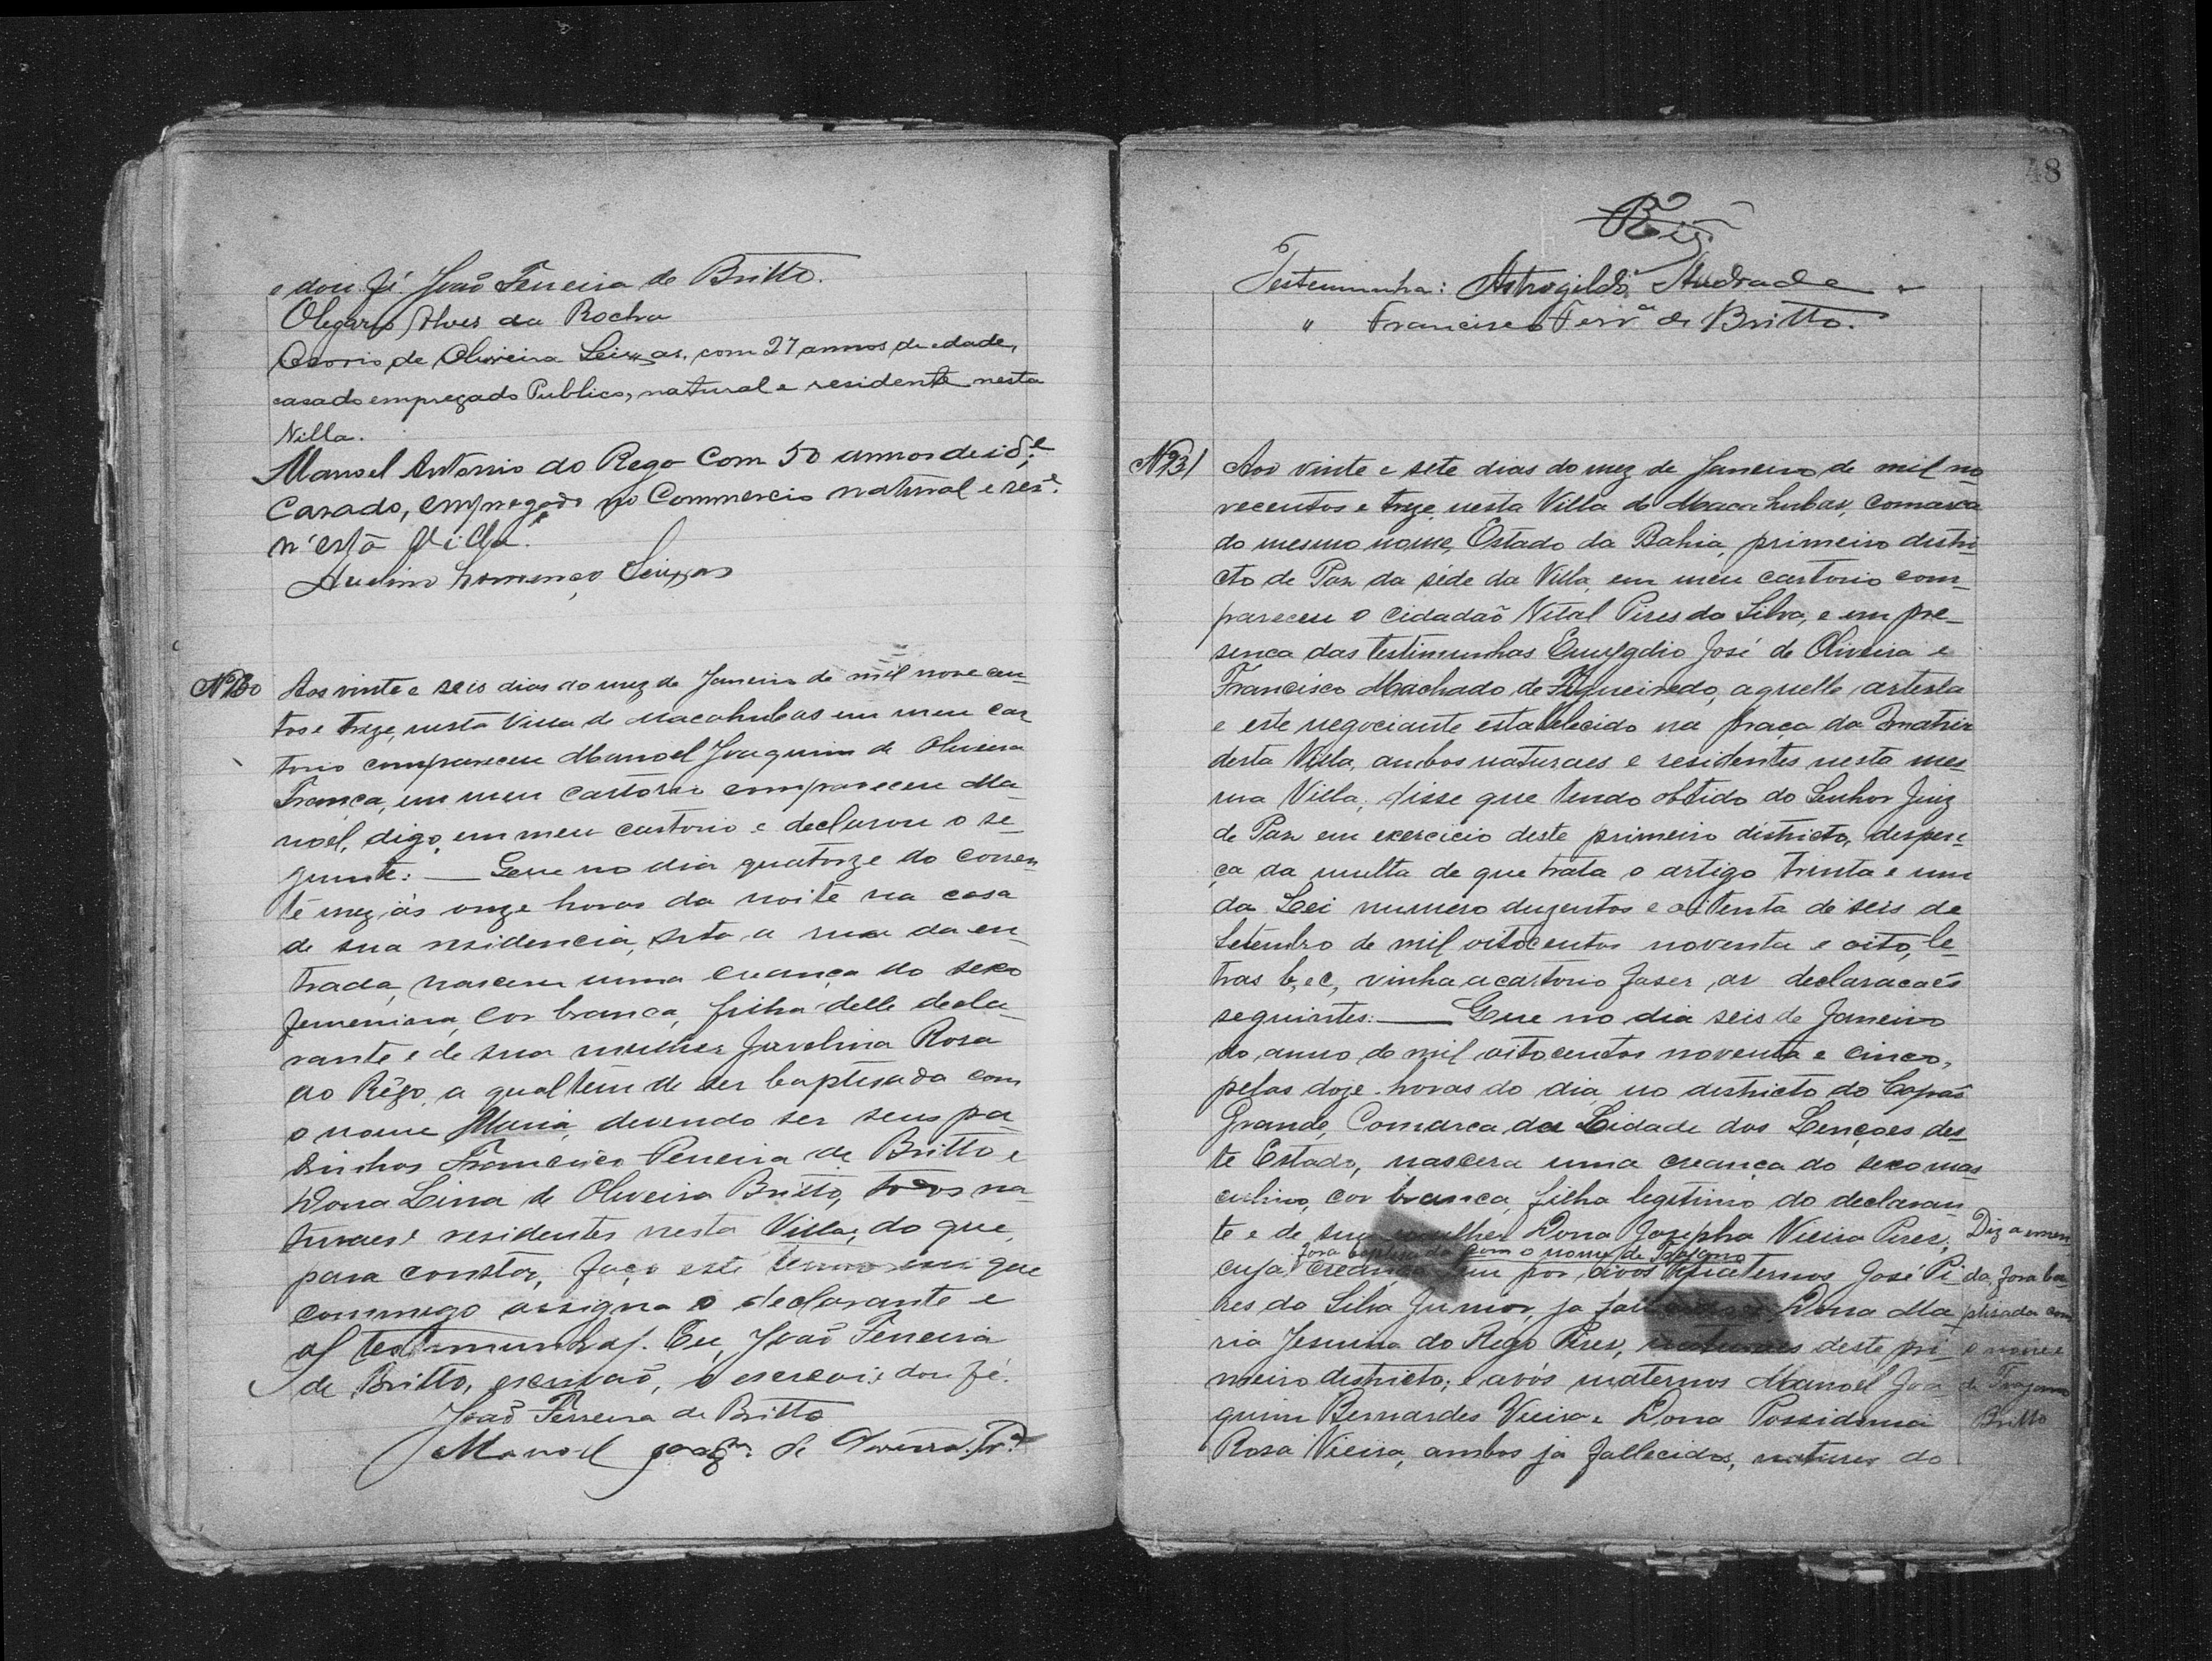 e dou fé. João Ferreira de Britto.
Olegario Alves da Rocha
Osorio de Oliveira Seixas, com 27 annos de edade,
casado empregado Publico, natural e residente nesta
Villa.
Manoel Antonio do Rego Com 50 annos de id.e
Casado, empregado no Commercio natural e res.e
n'esta Villa.
Lourenço Seixas
Nº 230 Aos vinte e seis dias do mez de Janeiro de mil nove cen-
tos e treze, nesta Villa de Macahubas em meu car
torio compareceu Manoel Joaquim de Oliveira
França, em meu cartorio compareceu Ma-
noel, digo, em meu cartorio e declarou o se-
guinte: — Que no dia quatorze do corren
te mez, ás onze horas da noite na casa
de sua residencia, sita a rua da en-
trada, nasceu uma creança do sexo
femenino, cor branca, filha delle decla-
rante e de sua mulher Juvelina Rosa
do Rêgo, a qual tem de ser baptisada com
o nome Maria, devendo ser seus pa-
drinhos Francisco Ferreira de Britto e
Dona Lina de Oliveira Britto, todos na-
turaes e residentes nesta Villa; do que,
para constar, faço este termo em que
commigo assigna o declarante e
as testemunhas. Eu, João Ferreira
de Britto, escrivão, o escrevi e dou fé.
João Ferreira de Britto
Manoel Joaqm. de Oliveira Fr.ca
48
Testemunha: Astrogildo Andrade
" Francisco Ferr.a de Britto.
Nº 231 Aos vinte e sete dias do mez de Janeiro de mil no
vecentos e treze, nesta Villa de Macahubas, comarca
do mesmo nome, Estado da Bahia, primeiro distri
cto de Paz da séde da Villa, em meu cartorio com-
pareceu o cidadão Vital Pires da Silva, e em pre-
sença das testimunhas Emygdio José de Oliveira e
Francisco Machado de Figueiredo, aquelle artista
e este negociante estabelecido na praça da Matriz
desta Villa, ambos naturaes e residentes nesta mes
ma Villa; disse que tendo obtido do Senhor Juiz
de Paz em exercicio deste primeiro districto, dispen-
ça da multa de que trata o artigo trinta e um
da Lei numero duzentos e oitenta de seis de
Setembro de mil oitocentos noventa e oito, le-
tras b, e c, vinha a cartorio faser as declaracaés
seguintes: — Que no dia seis de Janeiro
do anno de mil oitocentos noventa e cinco,
pelas doze horas do dia, no districto do Capão
Grande, Comarca da Cidade dos Lençoes des-
te Estado, nascera uma creança do sexo mas
culino, cor branca, filha legitimo do declaran
te e de sua mulher Dona Jozepha Vieira Pires,
fora baptisada com o nome de Trajano
cuja creança tem por avós paternos José Pi
res da Silva Junior, ja fallecido e Dona Ma
ria Jesuina do Rego Pires, naturaes deste pri-
meiro districto; e avós maternos Manoel Joa
quim Bernardes Vieira e Dona Possidonia
Rosa Vieira, ambos ja fallecidos, naturaes do
Diz a emen
da, fora ba-
ptisada com
o nome
de Trajano
Britto